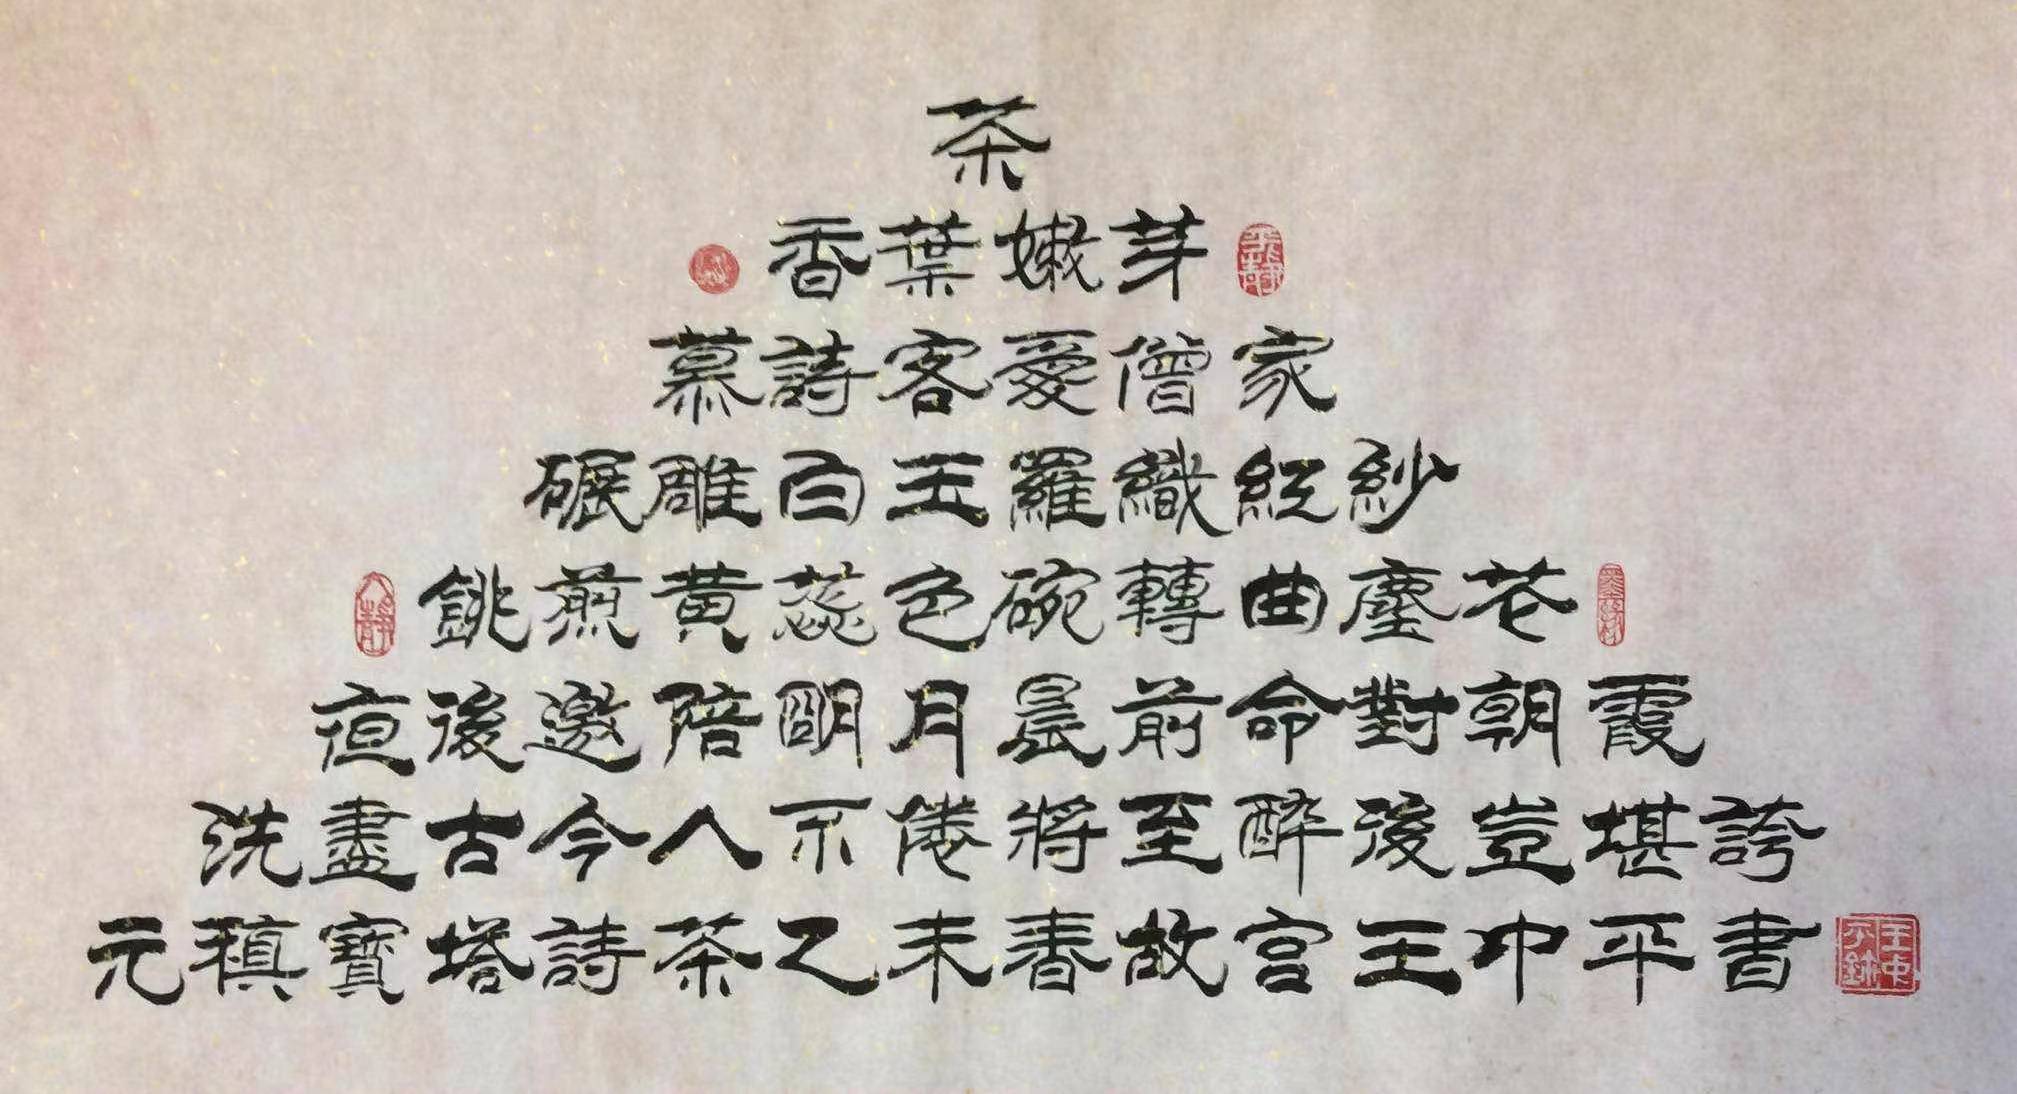 茶
香葉嫩芽
慕詩客愛僧家
碾雕白玉羅織紅紗
銚煎黃蕊色碗轉曲塵花
夜後邀陪明月晨前命對朝霞
洗盡古今人不倦將至醉後豈堪誇
元稹寶塔詩茶乙未春故宮王中平書